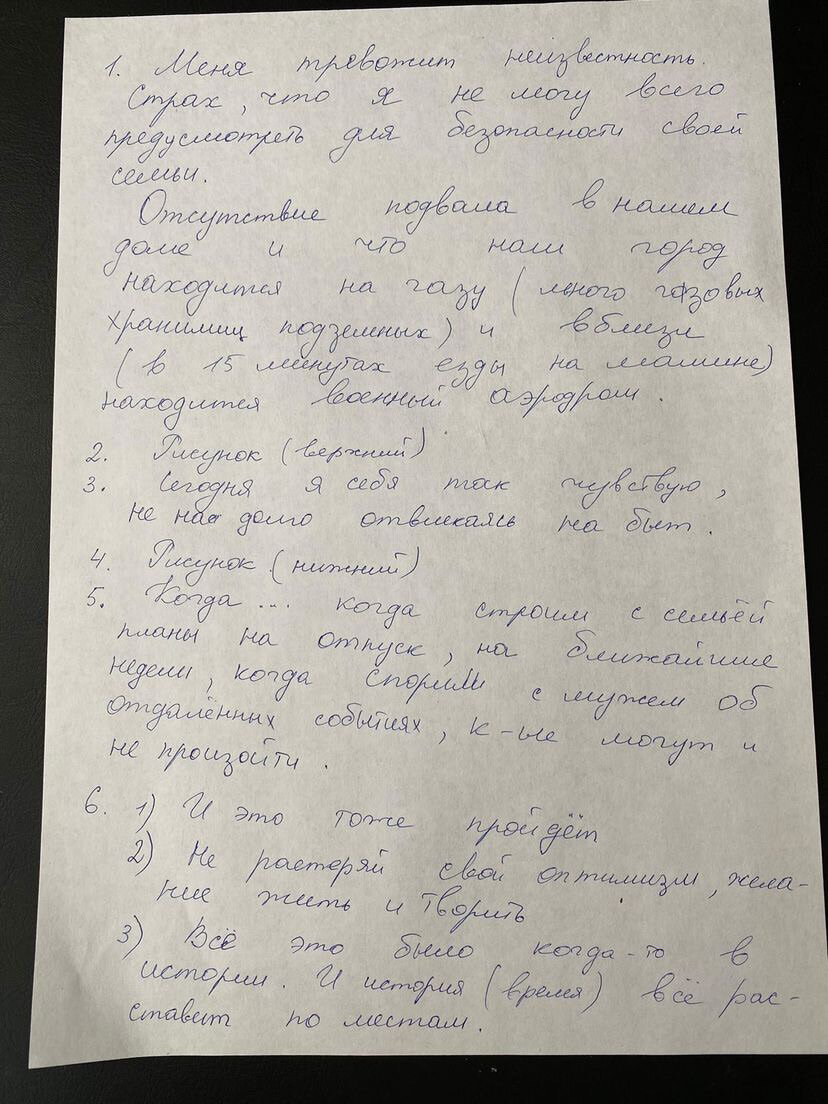 1. Меня тревожит неизвестность.
Страх, что я не могу всего
предусмотреть для безопасности своей
семьи.
Отсутствие подвала в нашем
доме и что наш город
находится на газу (много газовых
хранилищ подземных) и вблизи
(в 15 минутах езды на машине)
находится военный аэродром.
2. Рисунок (верхний)
3. Сегодня я себя так чувствую,
не на долго отвлекаясь на быт.
4. Рисунок (нижний)
5. Когда ... когда строим с семьёй
планы на отпуск, на ближайшие
недели, когда спорим с мужем об
отдалённых событиях, к-ые могут и
не произойти.
6. 1) И это тоже пройдёт
2) Не растеряй свой оптимизм, жела-
ние жить и творить
3) Всё это было когда-то в
истории. И история (время) всё рас-
ставит по местам.